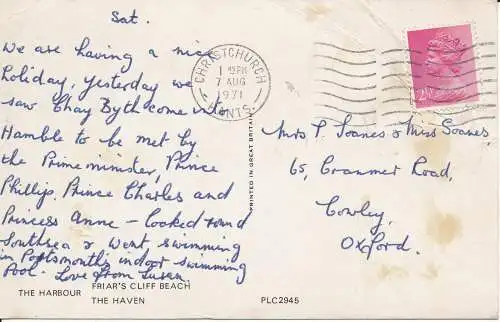 Sat.
We are having a nice
holiday, yesterday we
saw Chay Byth come into
Hamble to be met by
the Prime minister, Prince
Phillip, Prince Charles and
Princess Anne - looked round
Southsea & went swimming
in Portsmouth's indoor swimming
Pool. Love from Susan
THE HARBOUR FRIAR'S CLIFF BEACH
THE HAVEN
PRINTED IN GREAT BRITAIN
PLC2945
CHRISTCHURCH
1 15 PM
7 AUG
1971
HANTS.
2½
Mrs P Soanes & Miss Soanes,
65, Cranmer Road,
Cowley,
Oxford.